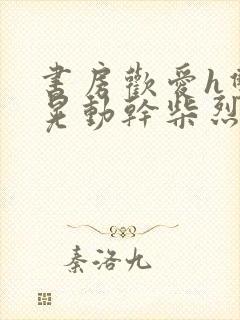 書房歡愛h
晃動幹柴烈
秦洛九